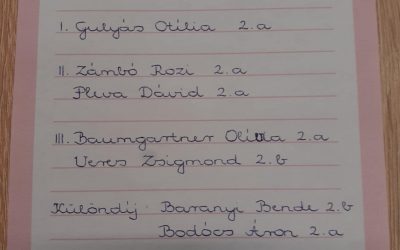 I. Gulyás Otília 2.a
II. Zámbó Rozi 2.a
Pluva Dávid 2.a
III. Baumgartner Olívia 2.a
Veres Zsigmond 2.b
Különdíj Baranyi Bende 2.b
Bodócs Áron 2.a